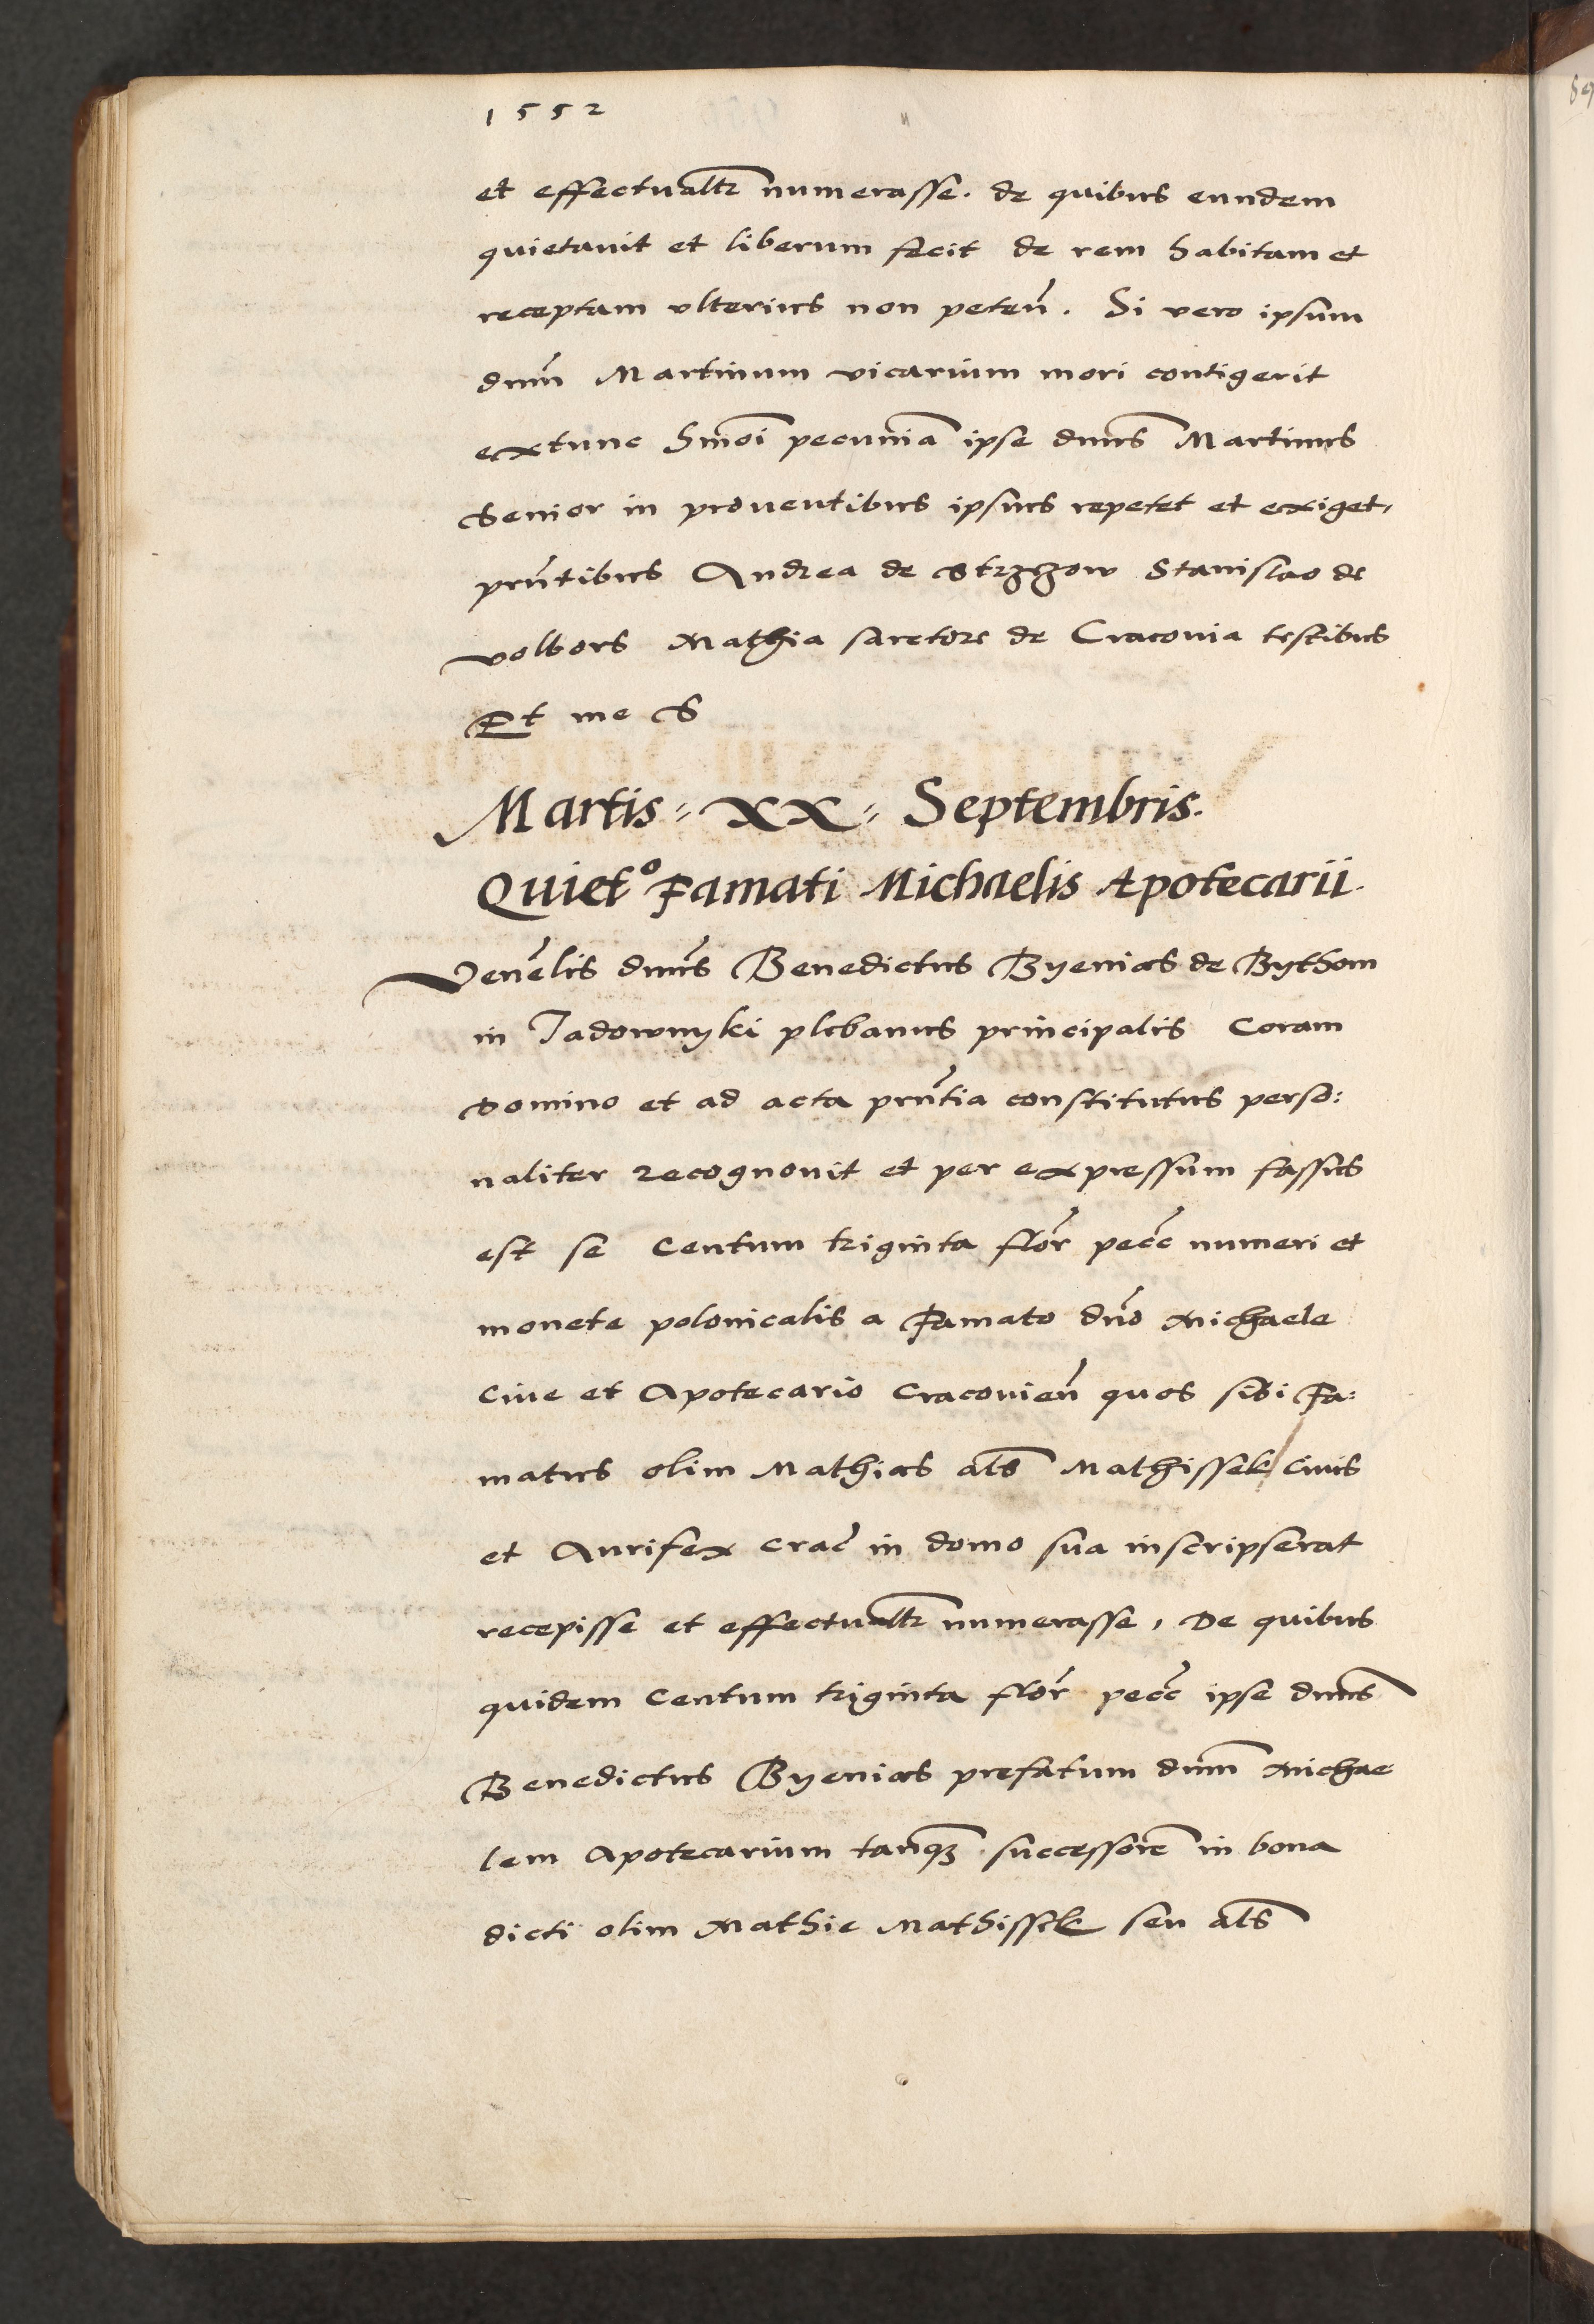 1552
et effectualtr numerasse. de quibus eundem
quietauit et liberum fecit de rem habitam et
receptam vlterius non peteñ. Si vero ipsum
dnm Martinum vicarium mori contigerit
extunc hmoi pecunia ipse dnus Martinus
Senior in prouentibus ipsius repetet et exiget,
pntibus Andrea de Strzezow Stanislao de
volbors Mathia sartore de Cracouia testibus
Et me S
Martis XX Septembris.
Quiet° Famati Michaelis Apotecarii.
Venelis dnus Benedictus Byenias de Bythom
in Jadownyki plebanus principalis Coram
Domino et ad acta pntia constitutus perso:
naliter recognouit et per expressum fassus
est se Centum triginta flor pecc numeri et
monete polonicalis a Famato dno Michaele
Ciue et Apotecario Cracouień quos sibi Fa:
matus olim Mathias als Mathissek Ciuis
et Aurifex Crac in domo sua inscripserat
recepisse et effectualtr numerasse, De quibus
quidem Centum triginta flor pecc ipse dnus
Benedictus Byenias prefatum dnm Michae
lem Apotecarium tanq successore in bona
dicti olim Mathie Mathissek seu als